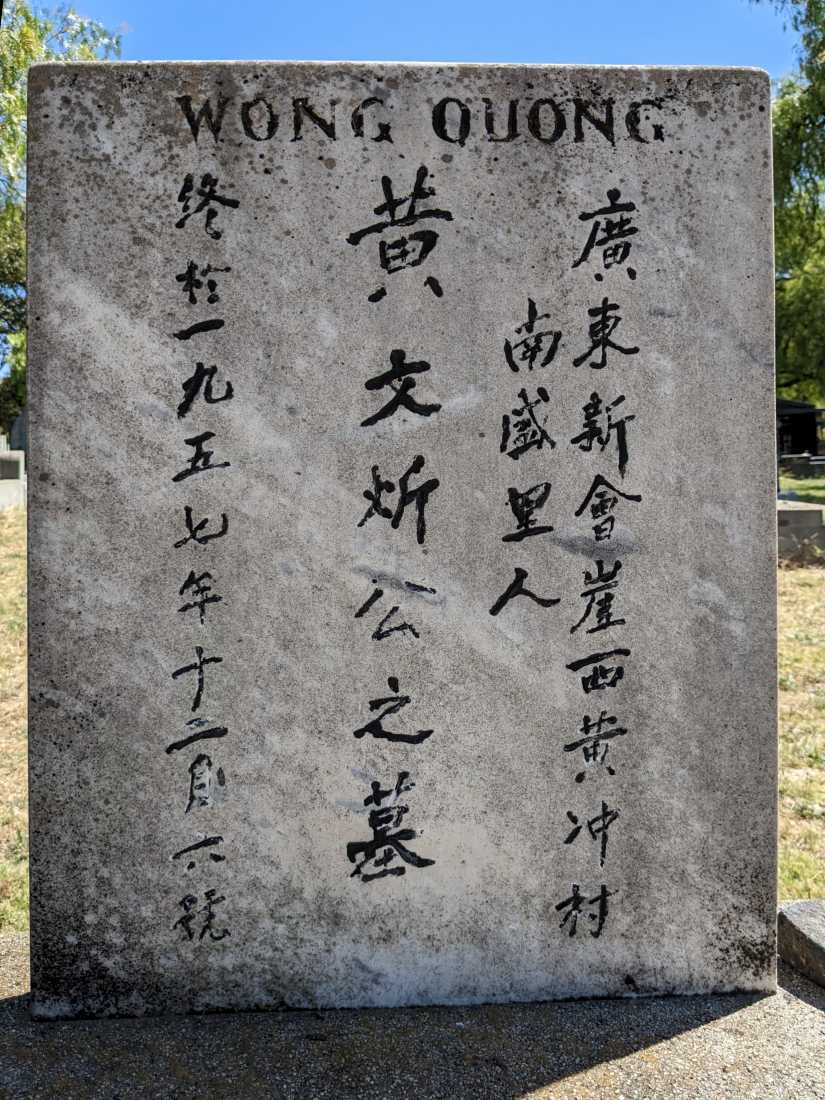 WONG QUONG
廣東新會崖西黄冲村
南盛里人
黄文炘公之墓
終於一九五七年十二月六號